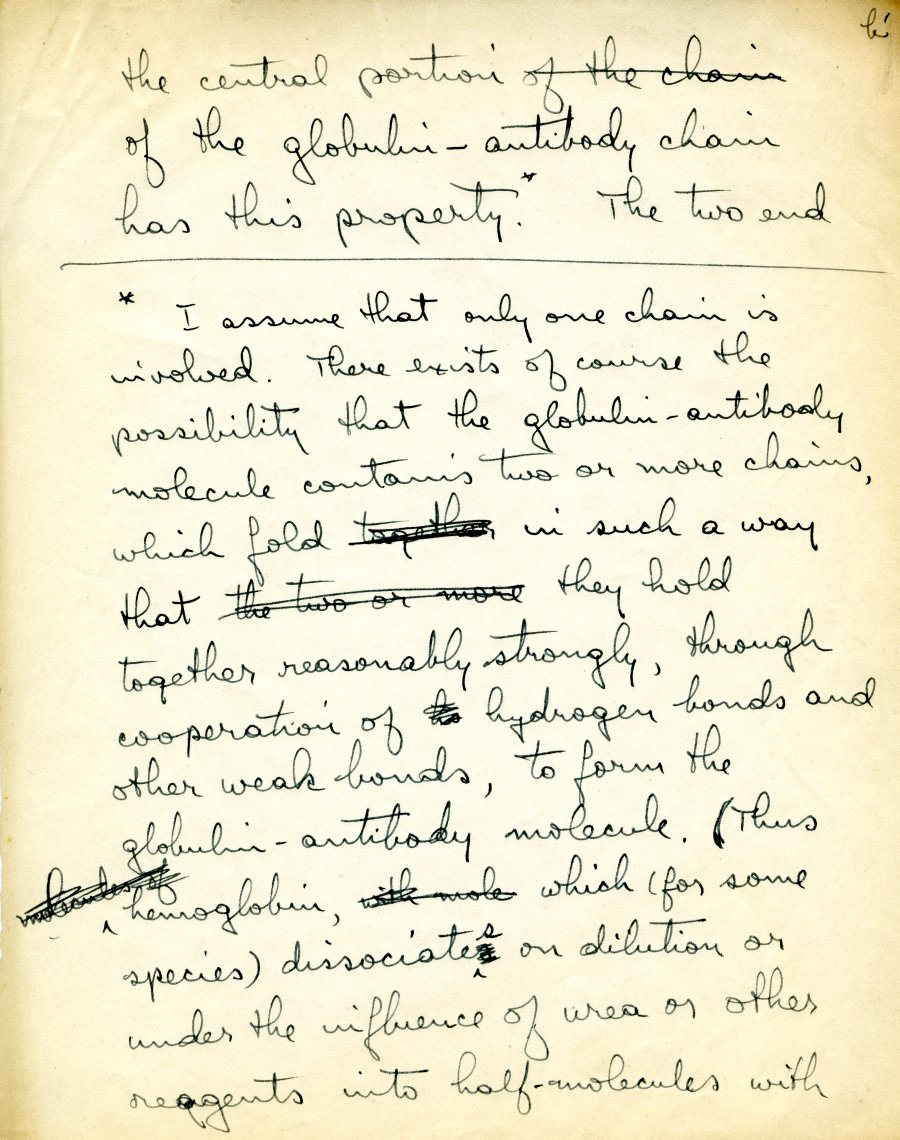 the central portion of the chain
of the globulin-antibody chain
has this property.* The two end
* I assume that only one chain is
involved. There exists of course the
possibility that the globulin-antibody
molecule contains two or more chains,
which fold together in such a way
that the two or more they hold
together reasonably strongly, through
cooperation of hydrogen bonds and
other weak bonds, to form the
globulin-antibody molecule. (Thus
molecules of hemoglobin, with mole which (for some
species) dissociates on dilution or
under the influence of urea or other
reagents into half-molecules with